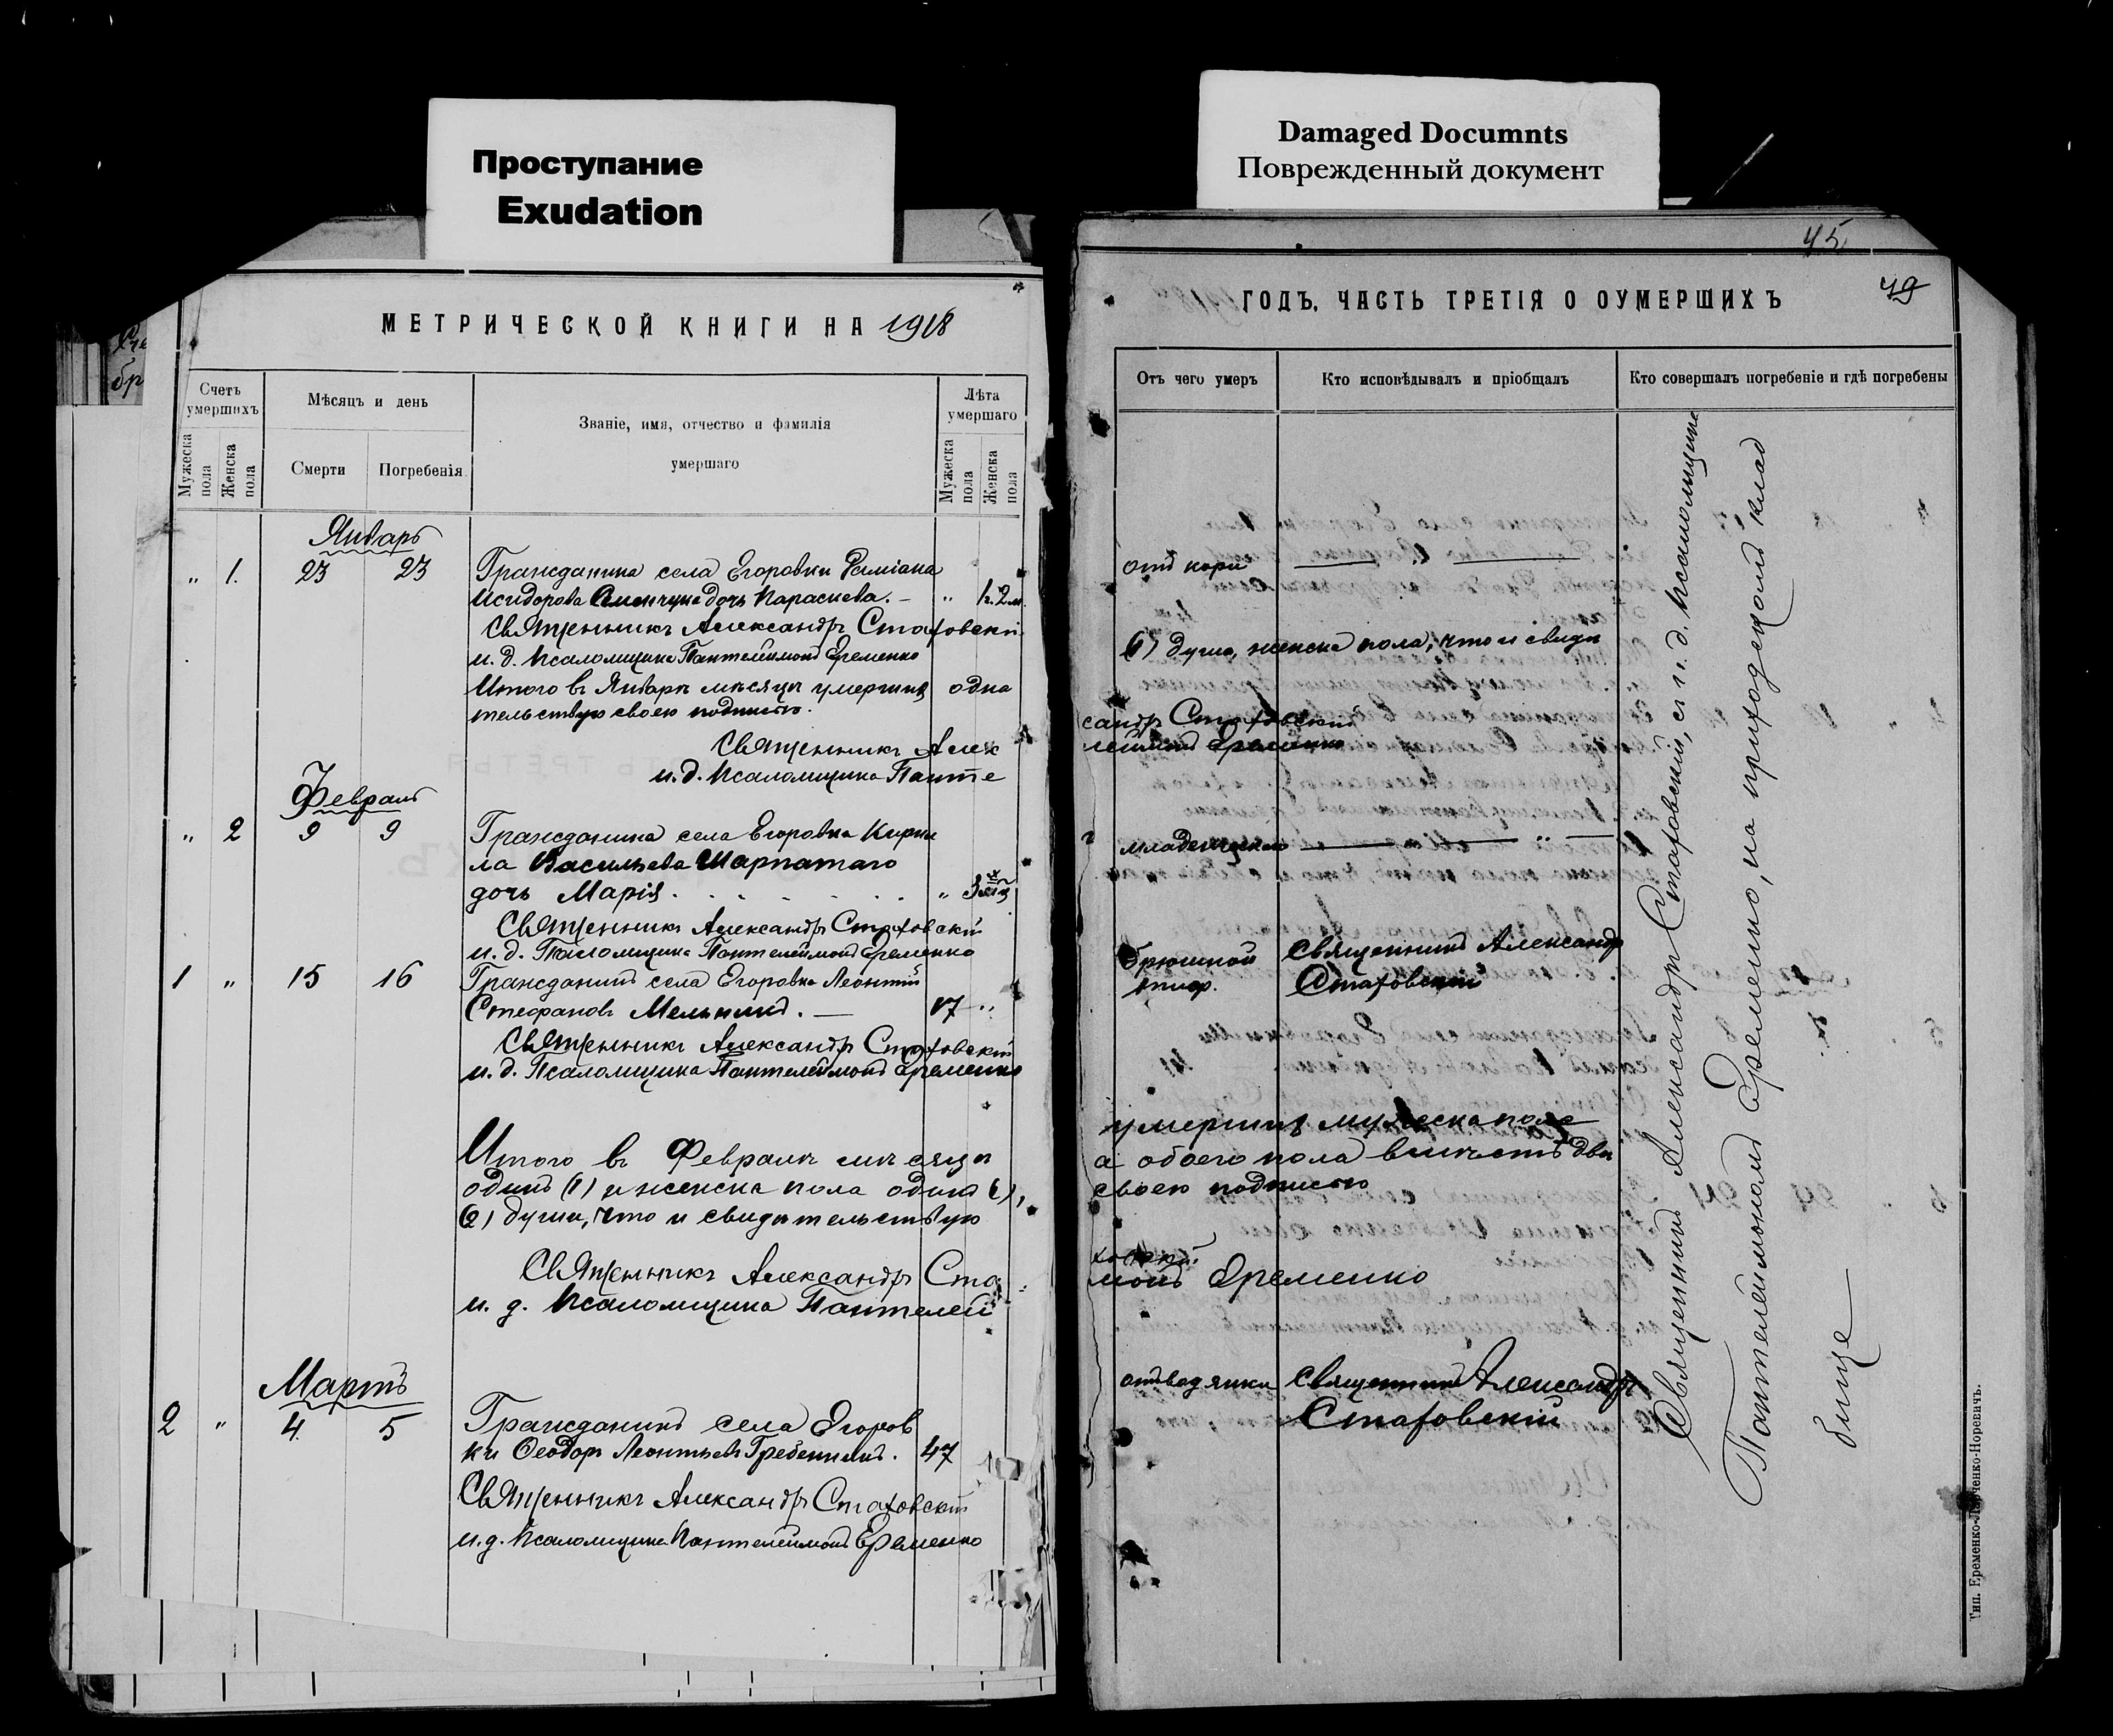 Проступание
Exudation
Damaged Documnts
Поврежденный документ
МЕТРИЧЕСКОЙ КНИГИ НА 1918
Счетъ умершихъ
Мужеска пола
Женска пола
Мѣсяцъ и день
Смерти
Погребенія
Званіе, имя, отчество и фамилія
умершаго
Лѣта умершаго
Мужеска пола
Женска пола
Январь
" 1. 23 23 Гражданина села Егоровки
Исидорова дочь Параскева. — " 1г. 2м.
Священникъ Александръ Стаховскій
и. д. Псаломщика Пантелеимонъ Еременко
Итого въ Январѣ мѣсяцѣ умершихъ одна
тельствую своею подписью.
Священникъ Алек
и. д. Псаломщика Панте
Февраль
" 2 9 9 Гражданина села Егоровка Кирил
ла Васильева Шарпатаго
дочь Марія . . . . . . . "
Священникъ Александръ Стаховскій
и. д. Псаломщика Пантелеймонъ Еременко
1 " 15 16 Гражданинъ села Егоровка Леонтій
Стефановъ Мельникъ. — 17 "
Священникъ Александръ Стаховскій
и. д. Псаломщика Пантелеймонъ Еременко
Итого въ Февралѣ мѣсяцѣ
одинъ (1) и женска пола одинъ (1),
(2) души, что и свидѣтельствую
Священникъ Александръ Ста
и. д. Псаломщика Пантелей
Мартъ
2 " 4 5 Гражданинъ села Егоров
ки Феодоръ Леонтьевъ Гребенникъ. 47
Священникъ Александръ Стаховскій
и. д. Псаломщика Пантелеимонъ Еременко
45
49
ГОДЪ, ЧАСТЬ ТРЕТІЯ О ОУМЕРШИХЪ
Отъ чего умеръ
Кто исповѣдывалъ и пріобщалъ
Кто совершалъ погребеніе и гдѣ погребены
отъ кори — " —
(1) душа, женска пола, что и свидѣ
сандръ Стаховскій
леймонъ Еременко
— " —
брюшной Священникъ Александр
тиф. Стаховскій
умершихъ мужеска пола
а обоего пола вмѣстѣ двѣ
своею подписью
ховскій
монъ Еременко
отъ водянки Священникъ Александръ
Стаховскій
Священникъ Александръ Стаховскій, съ и. д. псаломщика
Пантелеймономъ Еременко, на приходскомъ клад
бище
Тип. Еременко-Норевичъ.